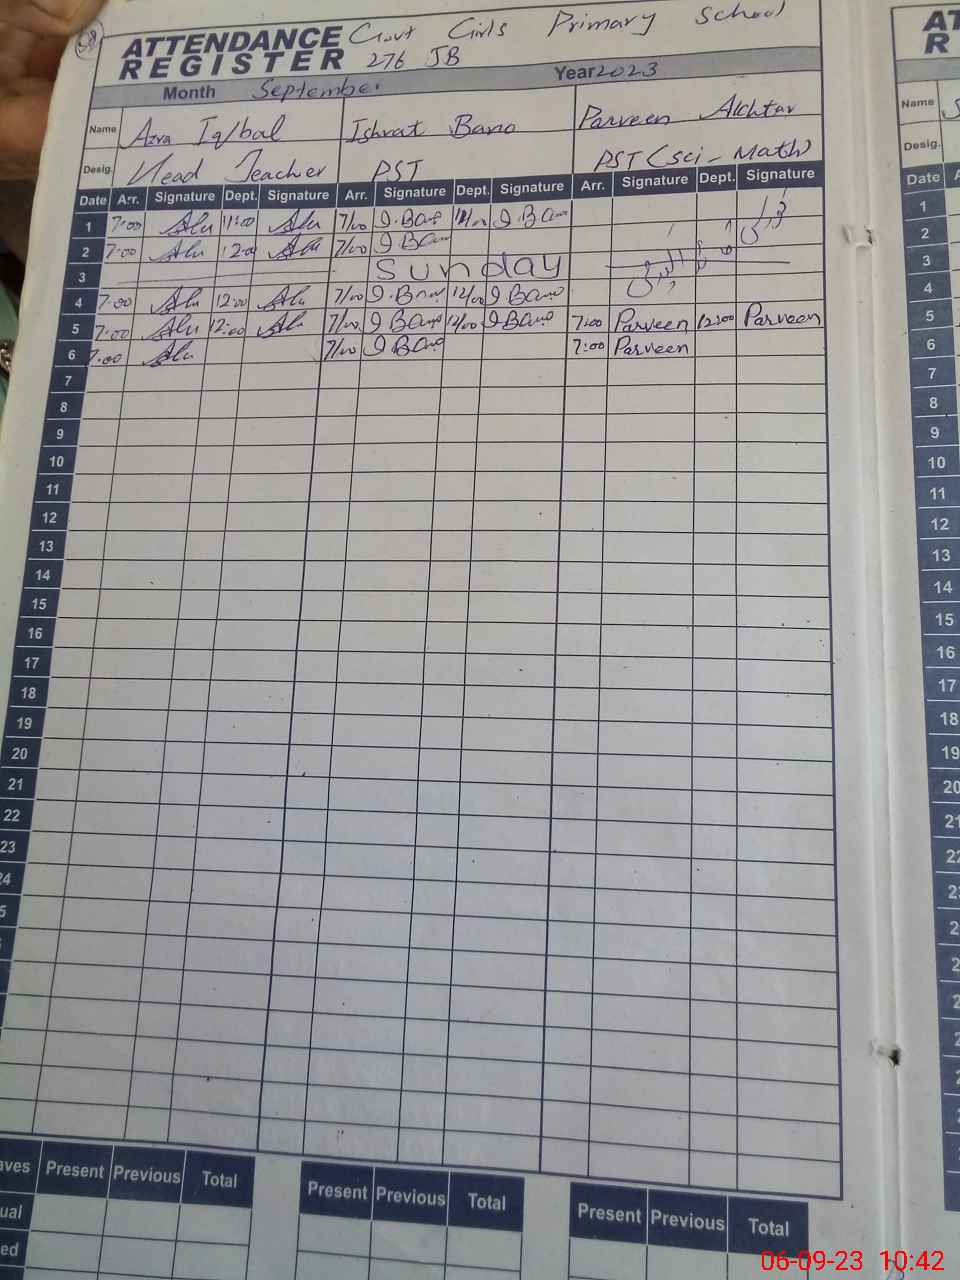 58
ATTENDANCE REGISTER Govt Girls Primary School
276 JB
Month September Year 2023
Name Azra Iqbal Ishrat Bano Parveen Akhtar
Desig. Head Teacher PST PST (Sci-Math)
Date Arr. Signature Dept. Signature Arr. Signature Dept. Signature Arr. Signature Dept. Signature
1 7:00 11:00 7/00 I.Bano I.Bano
2 7:00 12:00 7/00 I.Bano
3 Sunday
4 7:00 12:00 7/00 I.Bano 12/00 I Bano
5 7:00 12:00 7/00 I Bano 12/00 I Bano 7:00 Parveen 12:00 Parveen
6 7:00 7/00 I Bano 7:00 Parveen
7
8
9
10
11
12
13
14
15
16
17
18
19
20
21
22
23
24
Present Previous Total Present Previous Total Present Previous Total
Name
Desig.
Date
1
2
3
4
5
6
7
8
9
10
11
12
13
14
15
16
17
18
19
20
06-09-23 10:42